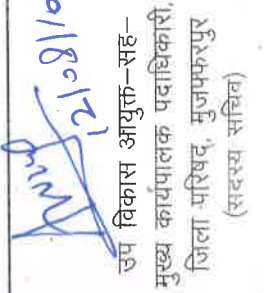 12/08/19
उप विकास आयुक्त–सह–
मुख्य कार्यपालक पदाधिकारी,
जिला परिषद्, मुजफ्फरपुर
(सदस्य सचिव)